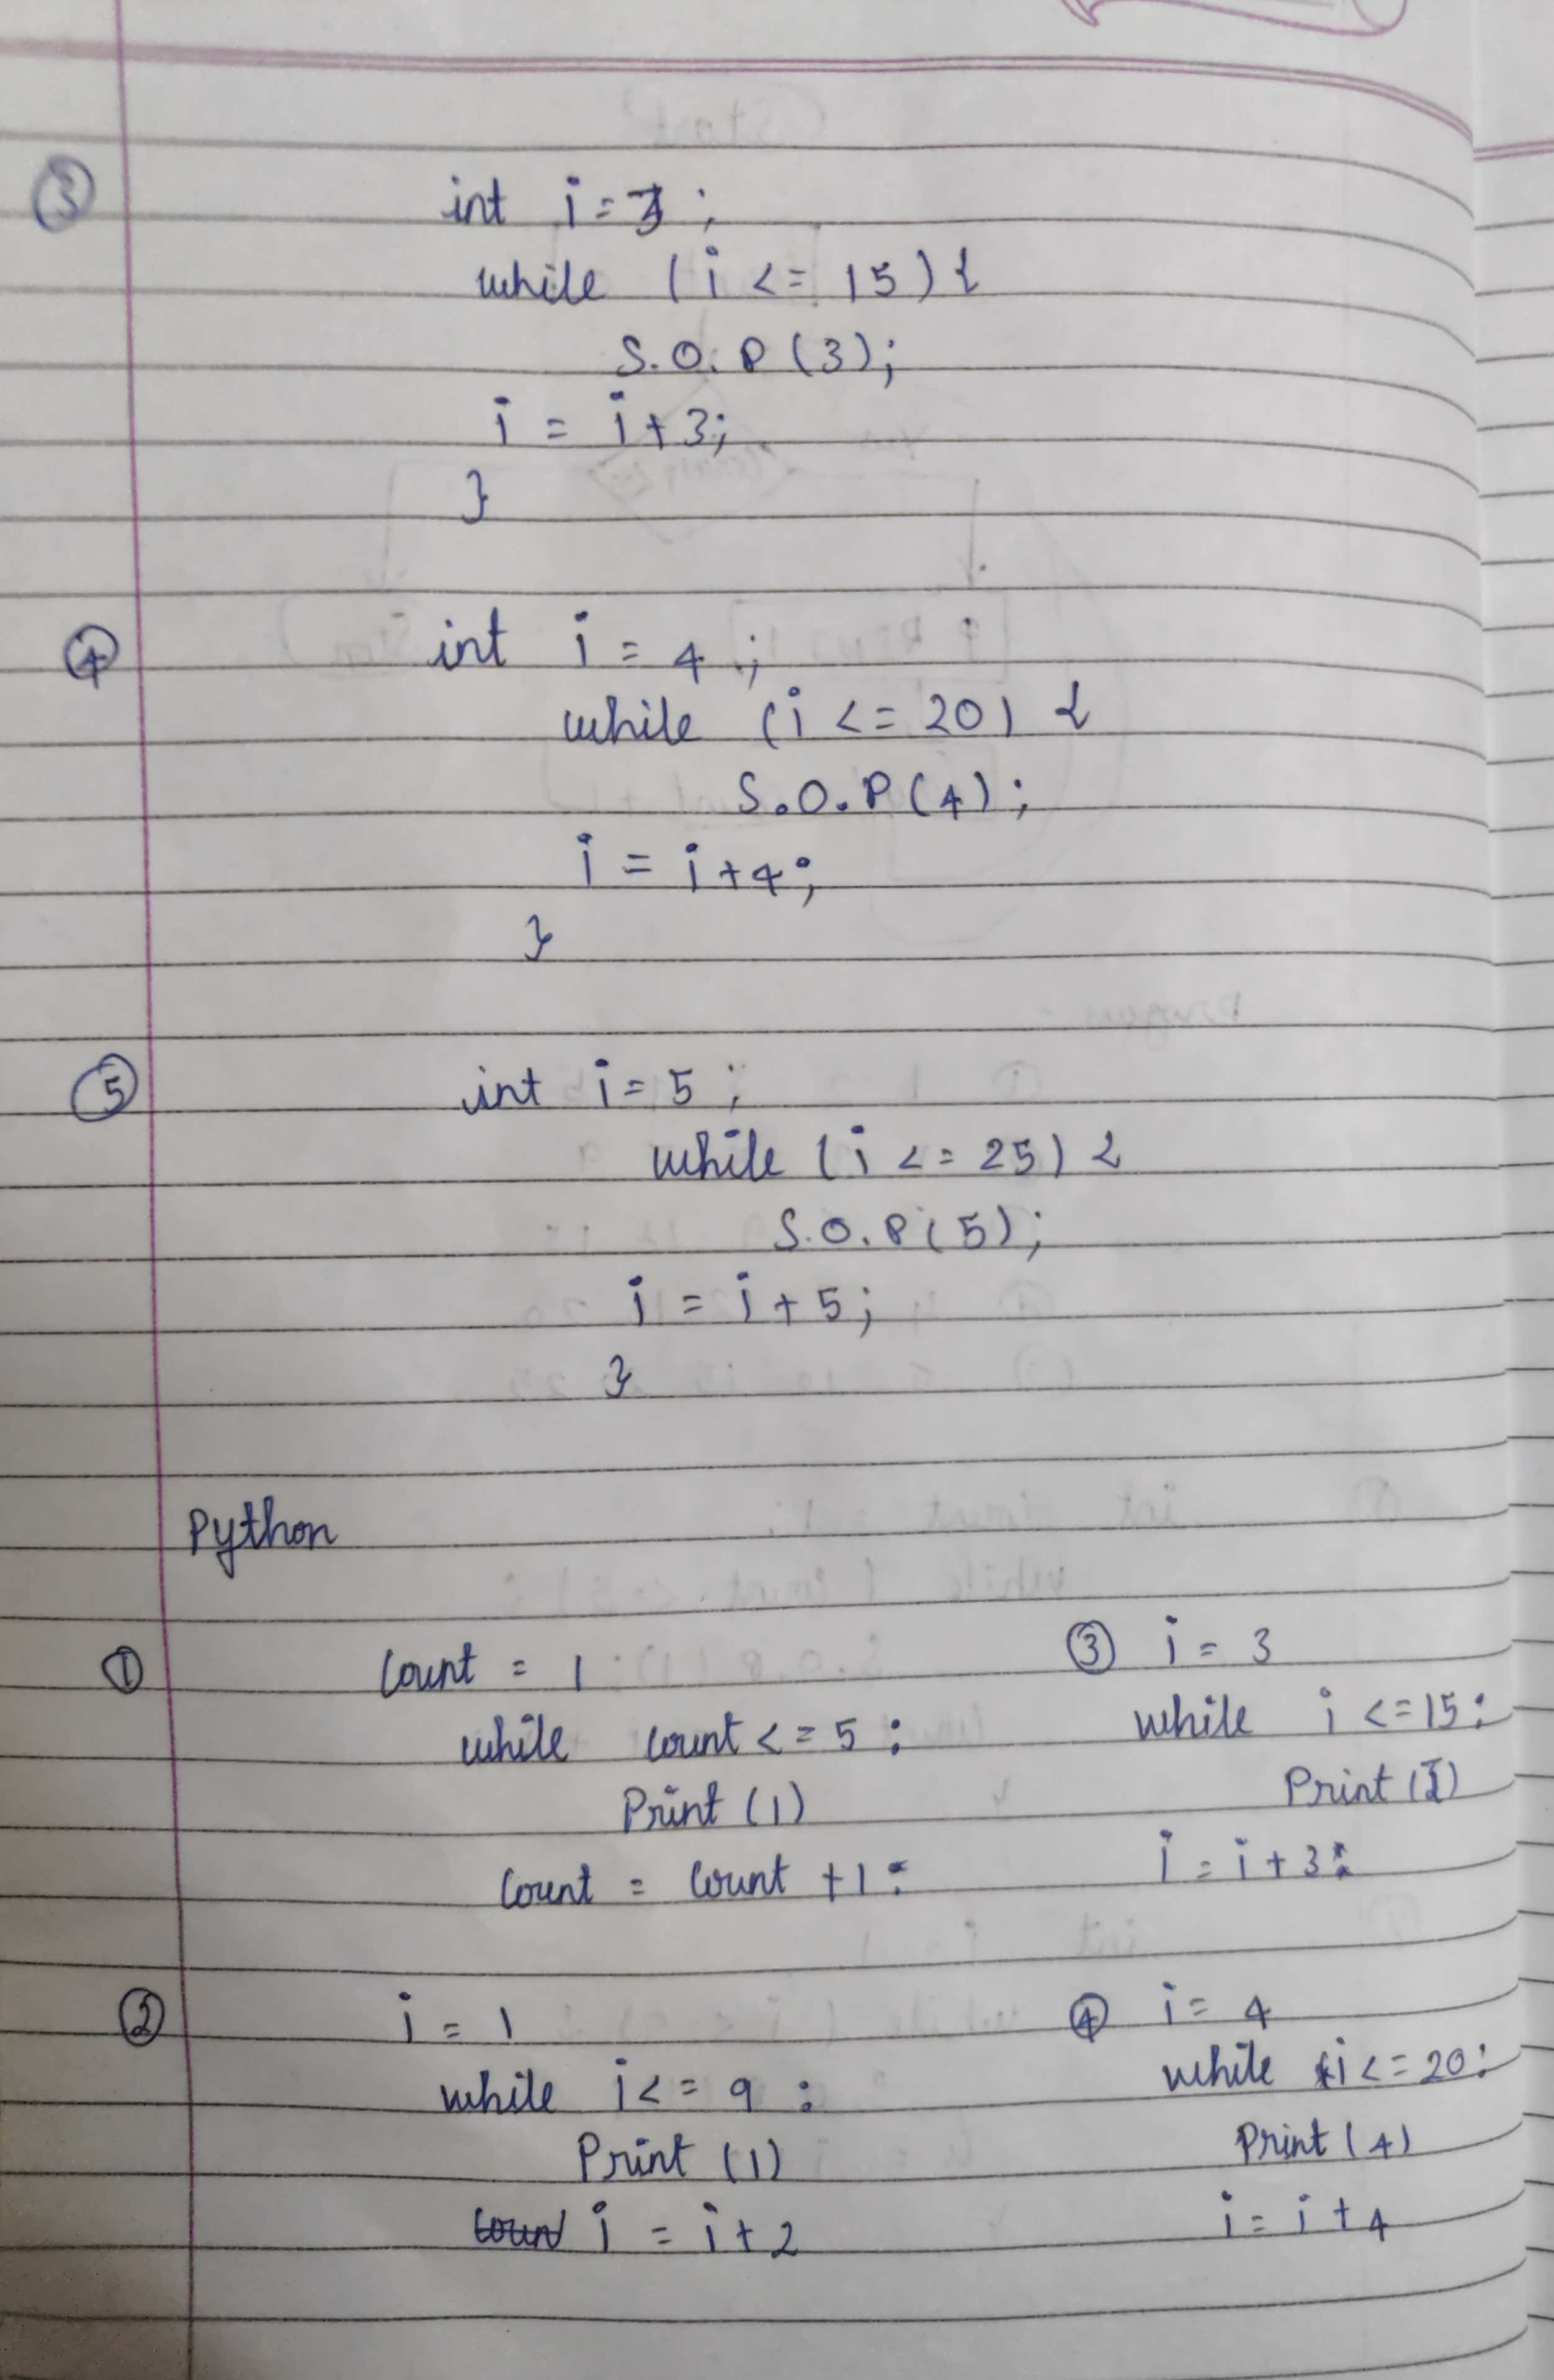 ③ int i = 3 ;
while (i <= 15) {
S.O.P (3);
i = i + 3;
}
④ int i = 4 ;
while (i <= 20) {
S.O.P (4) ;
i = i + 4 ;
}
⑤ int i = 5 ;
while (i <= 25) {
S.O.P (5) ;
i = i + 5 ;
}
Python
① Count = 1
while count <= 5 :
Print (1)
Count = Count + 1 :
② i = 1
while i <= 9 :
Print (1)
i = i + 2
③ i = 3
while i <= 15 :
Print ( )
i = i + 3 :
④ i = 4
while i <= 20 :
Print (4)
i = i + 4